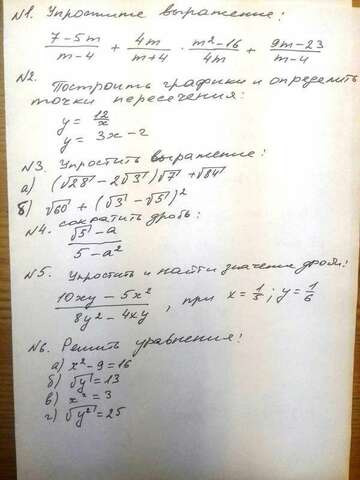 №1. Упростите выражение:
(7-5m)/(m-4) + (4m)/(m+4) · (m²-16)/(4m) + (9m-23)/(m-4)
№2. Построить графики и определить
точки пересечения:
y = 12/x
y = 3x-2
№3. Упростить выражение:
а) (√28 - 2√3)√7 + √84
б) √60 + (√3 - √5)²
№4. сократить дробь:
(√5 - a)/(5 - a²)
№5. Упростить и найти значение дроби:
(10xy - 5x²)/(8y² - 4xy), при x = 1/3; y = 1/6
№6. Решить уравнения:
а) x² - 9 = 16
б) √y = 13
в) x² = 3
г) √y² = 25